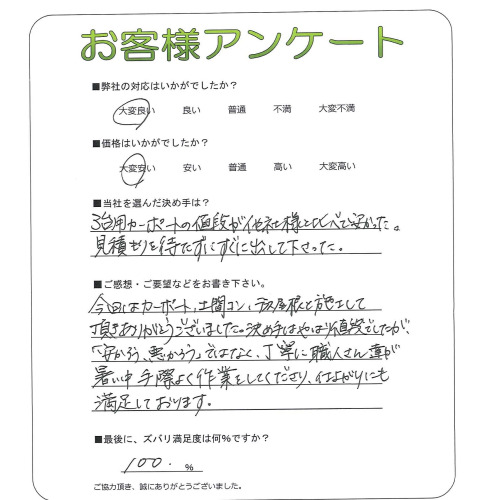 お客様アンケート
■弊社の対応はいかがでしたか?
大変良い 良い 普通 不満 大変不満
■価格はいかがでしたか?
大変安い 安い 普通 高い 大変高い
■当社を選んだ決め手は?
3台用カーポートの値段が他社様と比べて安かった。
見積もりを待たずにすぐに出して下さった。
■ご感想・ご要望などをお書き下さい。
今回はカーポート、土間コン、屋根と施工して
頂きありがとうございました。決め手はやはり値段でしたが、
「安かろう、悪かろう」ではなく、丁寧に職人さん達が
暑い中手際よく作業をしてくださり、仕上がりにも
満足しております。
■最後に、ズバリ満足度は何%ですか?
100. %
ご協力頂き、誠にありがとうございました。